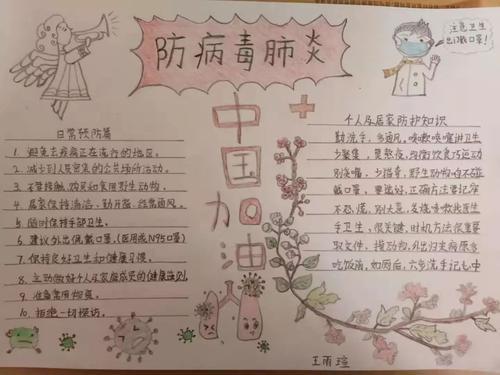 防病毒肺炎
注意卫生
出门戴口罩！
中国加油
日常预防篇
1、避免去疾病正在流行的地区。
2、减少到人员密集的公共场所活动。
3、不要接触、购买和食用野生动物。
4、居家保持清洁，勤开窗，经常通风。
5、随时保持手部卫生。
6、建议外出佩戴口罩（医用或N95口罩）
7、保持良好卫生和健康习惯。
8、主动做好个人及家庭成员的健康监测
9、准备常用物资。
10、拒绝一切探访。
个人及居家防护知识
勤洗手，多通风，咳嗽喷嚏讲卫生
少聚集，莫熬夜，均衡饮食巧运动
别尖嘴，少猎奇，野生动物不能碰
戴口罩，要选好，正确方法要记牢
不恐慌，别大意，发烧咳嗽找医生
手卫生，很关键，时机方法很重要
取文件，接动物，外出归来病原多
吃饭前，如厕后，六步洗手记心中
王雨瑄